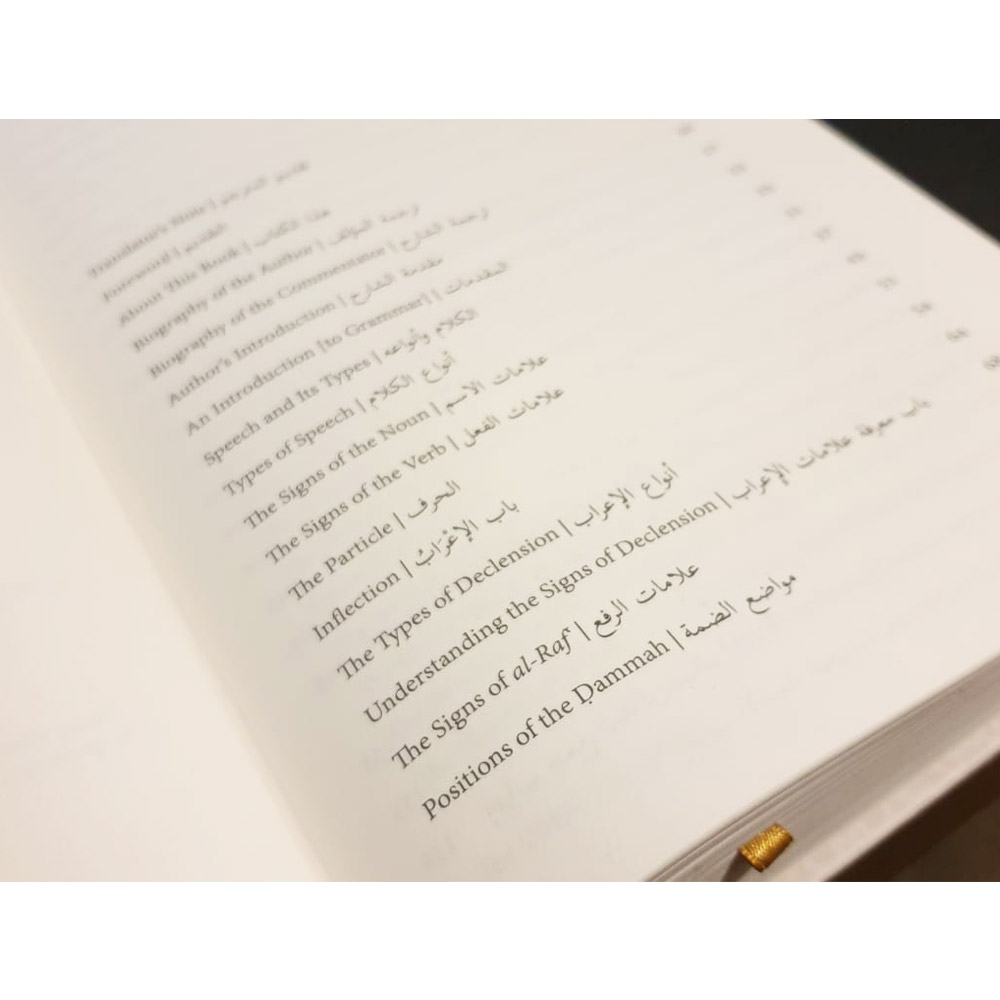 Translator's Note | تقديم المترجم
Foreword | التقديم
About This Book | هذا الكتاب
Biography of the Author | ترجمة المؤلف
Biography of the Commentator | ترجمة الشارح
Author's Introduction | مقدمة الشارح
An Introduction [to Grammar] | المقدمات
Speech and Its Types | الكلام وأنواعه
Types of Speech | أنواع الكلام
The Signs of the Noun | علامات الاسم
The Signs of the Verb | علامات الفعل
The Particle | الحرف
Inflection | باب الإعْرَابُ
The Types of Declension | أنواع الإعراب
Understanding the Signs of Declension | باب معرفة علامات الإعراب
The Signs of al-Rafʿ | علامات الرفع
Positions of the Ḍammah | مواضع الضمة